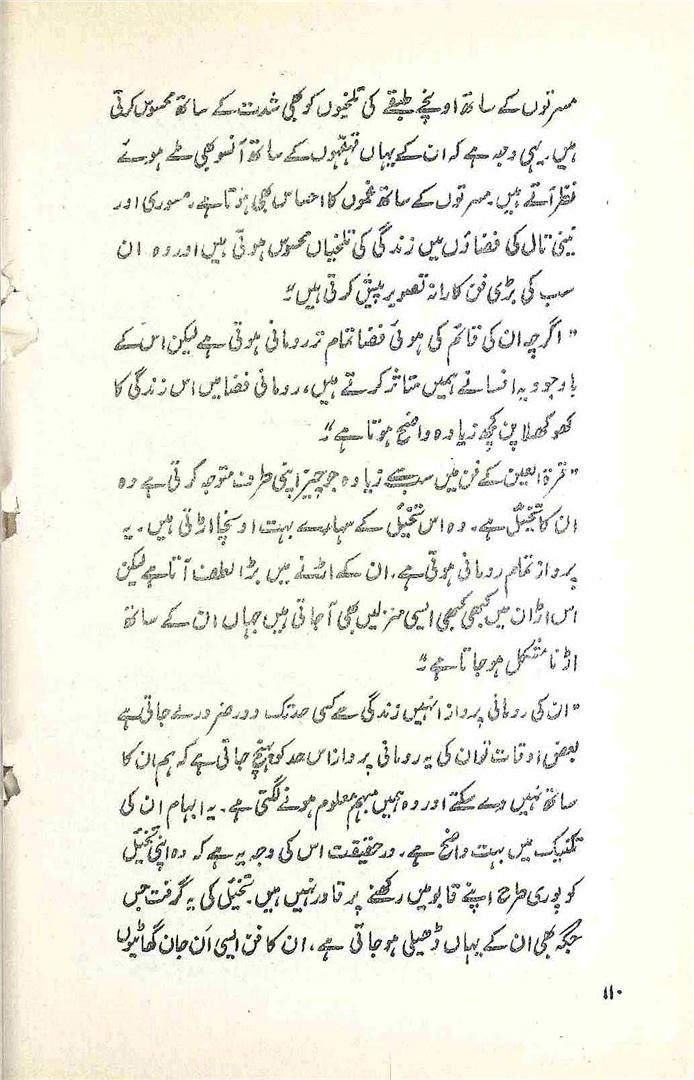 مسرتوں کے ساتھ اونچے طبقے کی تلخیوں کو بھی شدت کے ساتھ محسوس کرتی
ہیں۔ یہی وجہ ہے کہ ان کے یہاں قہقہوں کے ساتھ آنسو بھی ملے ہوئے
نظر آتے ہیں۔ مسرتوں کے ساتھ غموں کا احساس بھی ہوتا ہے۔ مسوری اور
نینی تال کی فضاؤں میں زندگی کی تلخیاں محسوس ہوتی ہیں اور وہ ان
سب کی بڑی فن کارانہ تصویر پیش کرتی ہیں"
"اگرچہ ان کی قائم کی ہوئی فضا تمام تر رومانی ہوتی ہے لیکن اس کے
باوجود یہ افسانے ہمیں متاثر کرتے ہیں، رومانی فضا میں اس زندگی کا
کھوکھلا پن کچھ زیادہ واضح ہوتا ہے"
"قرۃ العین کے فن میں سب سے زیادہ جو چیز اپنی طرف متوجہ کرتی ہے وہ
ان کا تخیل ہے۔ وہ اس تخیل کے سہارے بہت اونچا اڑتی ہیں۔ یہ
پرواز تمام رومانی ہوتی ہے۔ ان کے اڑنے میں بڑا لطف آتا ہے لیکن
اس اڑان میں کبھی کبھی ایسی منزلیں بھی آجاتی ہیں جہاں ان کے ساتھ
اڑنا مشکل ہوجاتا ہے"
"ان کی رومانی پرواز انہیں زندگی سے کسی حد تک دور ضرور لے جاتی ہے
بعض اوقات تو ان کی یہ رومانی پرواز اس حد کو پہنچ جاتی ہے کہ ہم ان کا
ساتھ نہیں دے سکتے اور وہ ہمیں مبہم معلوم ہونے لگتی ہے۔ یہ ابہام ان کی
تکنیک میں بہت واضح ہے۔ درحقیقت اس کی وجہ یہ ہے کہ وہ اپنی تخیل
کو پوری طرح اپنے قابو میں رکھنے پر قادر نہیں ہیں۔ تخیل کی یہ گرفت جس
جگہ بھی ان کے یہاں ڈھیلی ہوجاتی ہے، ان کا فن ایسی اَن جان گھاٹیوں
۱۱۰